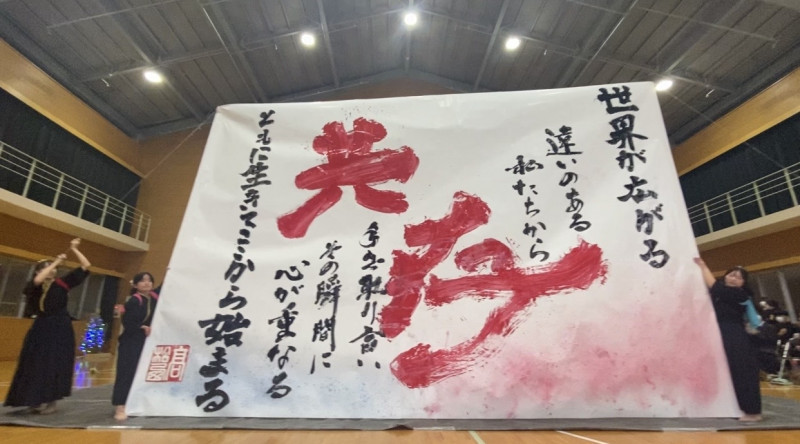 世界が広がる
違いのある
私たちから
共存
手を取り合い
その瞬間に
心が重なる
ともに生きてここから始まる